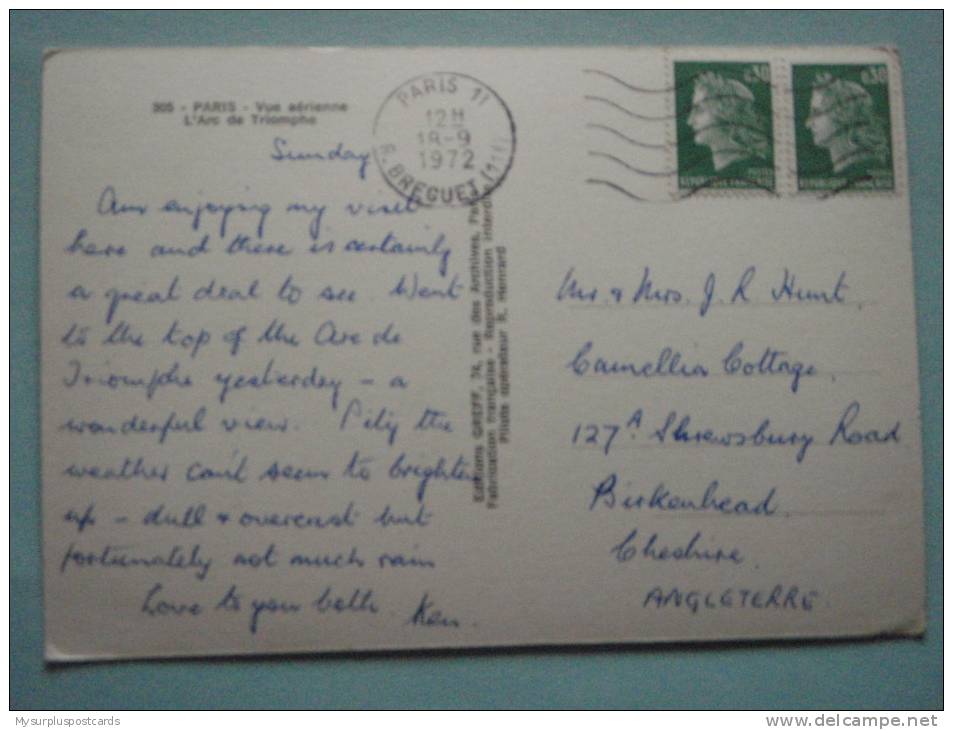 305 - PARIS - Vue aérienne
L'Arc de Triomphe
PARIS 11
12H
18-9
1972
R. BREGUET (11E)
0,30
0,30
REPUBLIQUE FRANÇAISE
REPUBLIQUE FRANÇAISE
Sunday
Am enjoying my visit
here and there is certainly
a great deal to see. Went
to the top of the Arc de
Triomphe yesterday - a
wonderful view. Pity the
weather can't seem to brighten
up - dull & overcast but
fortunately not much rain
Love to you both. Ken.
Editions GREFF, 74, rue des Archives,
Fabrication française - Reproduction interdite
Pilote opérateur R. Henrard
Mr & Mrs. J. R. Hunt.
Camellia Cottage.
127A Shrewsbury Road
Birkenhead.
Cheshire.
ANGLETERRE.
Mysurpluspostcards
www.delcampe.net